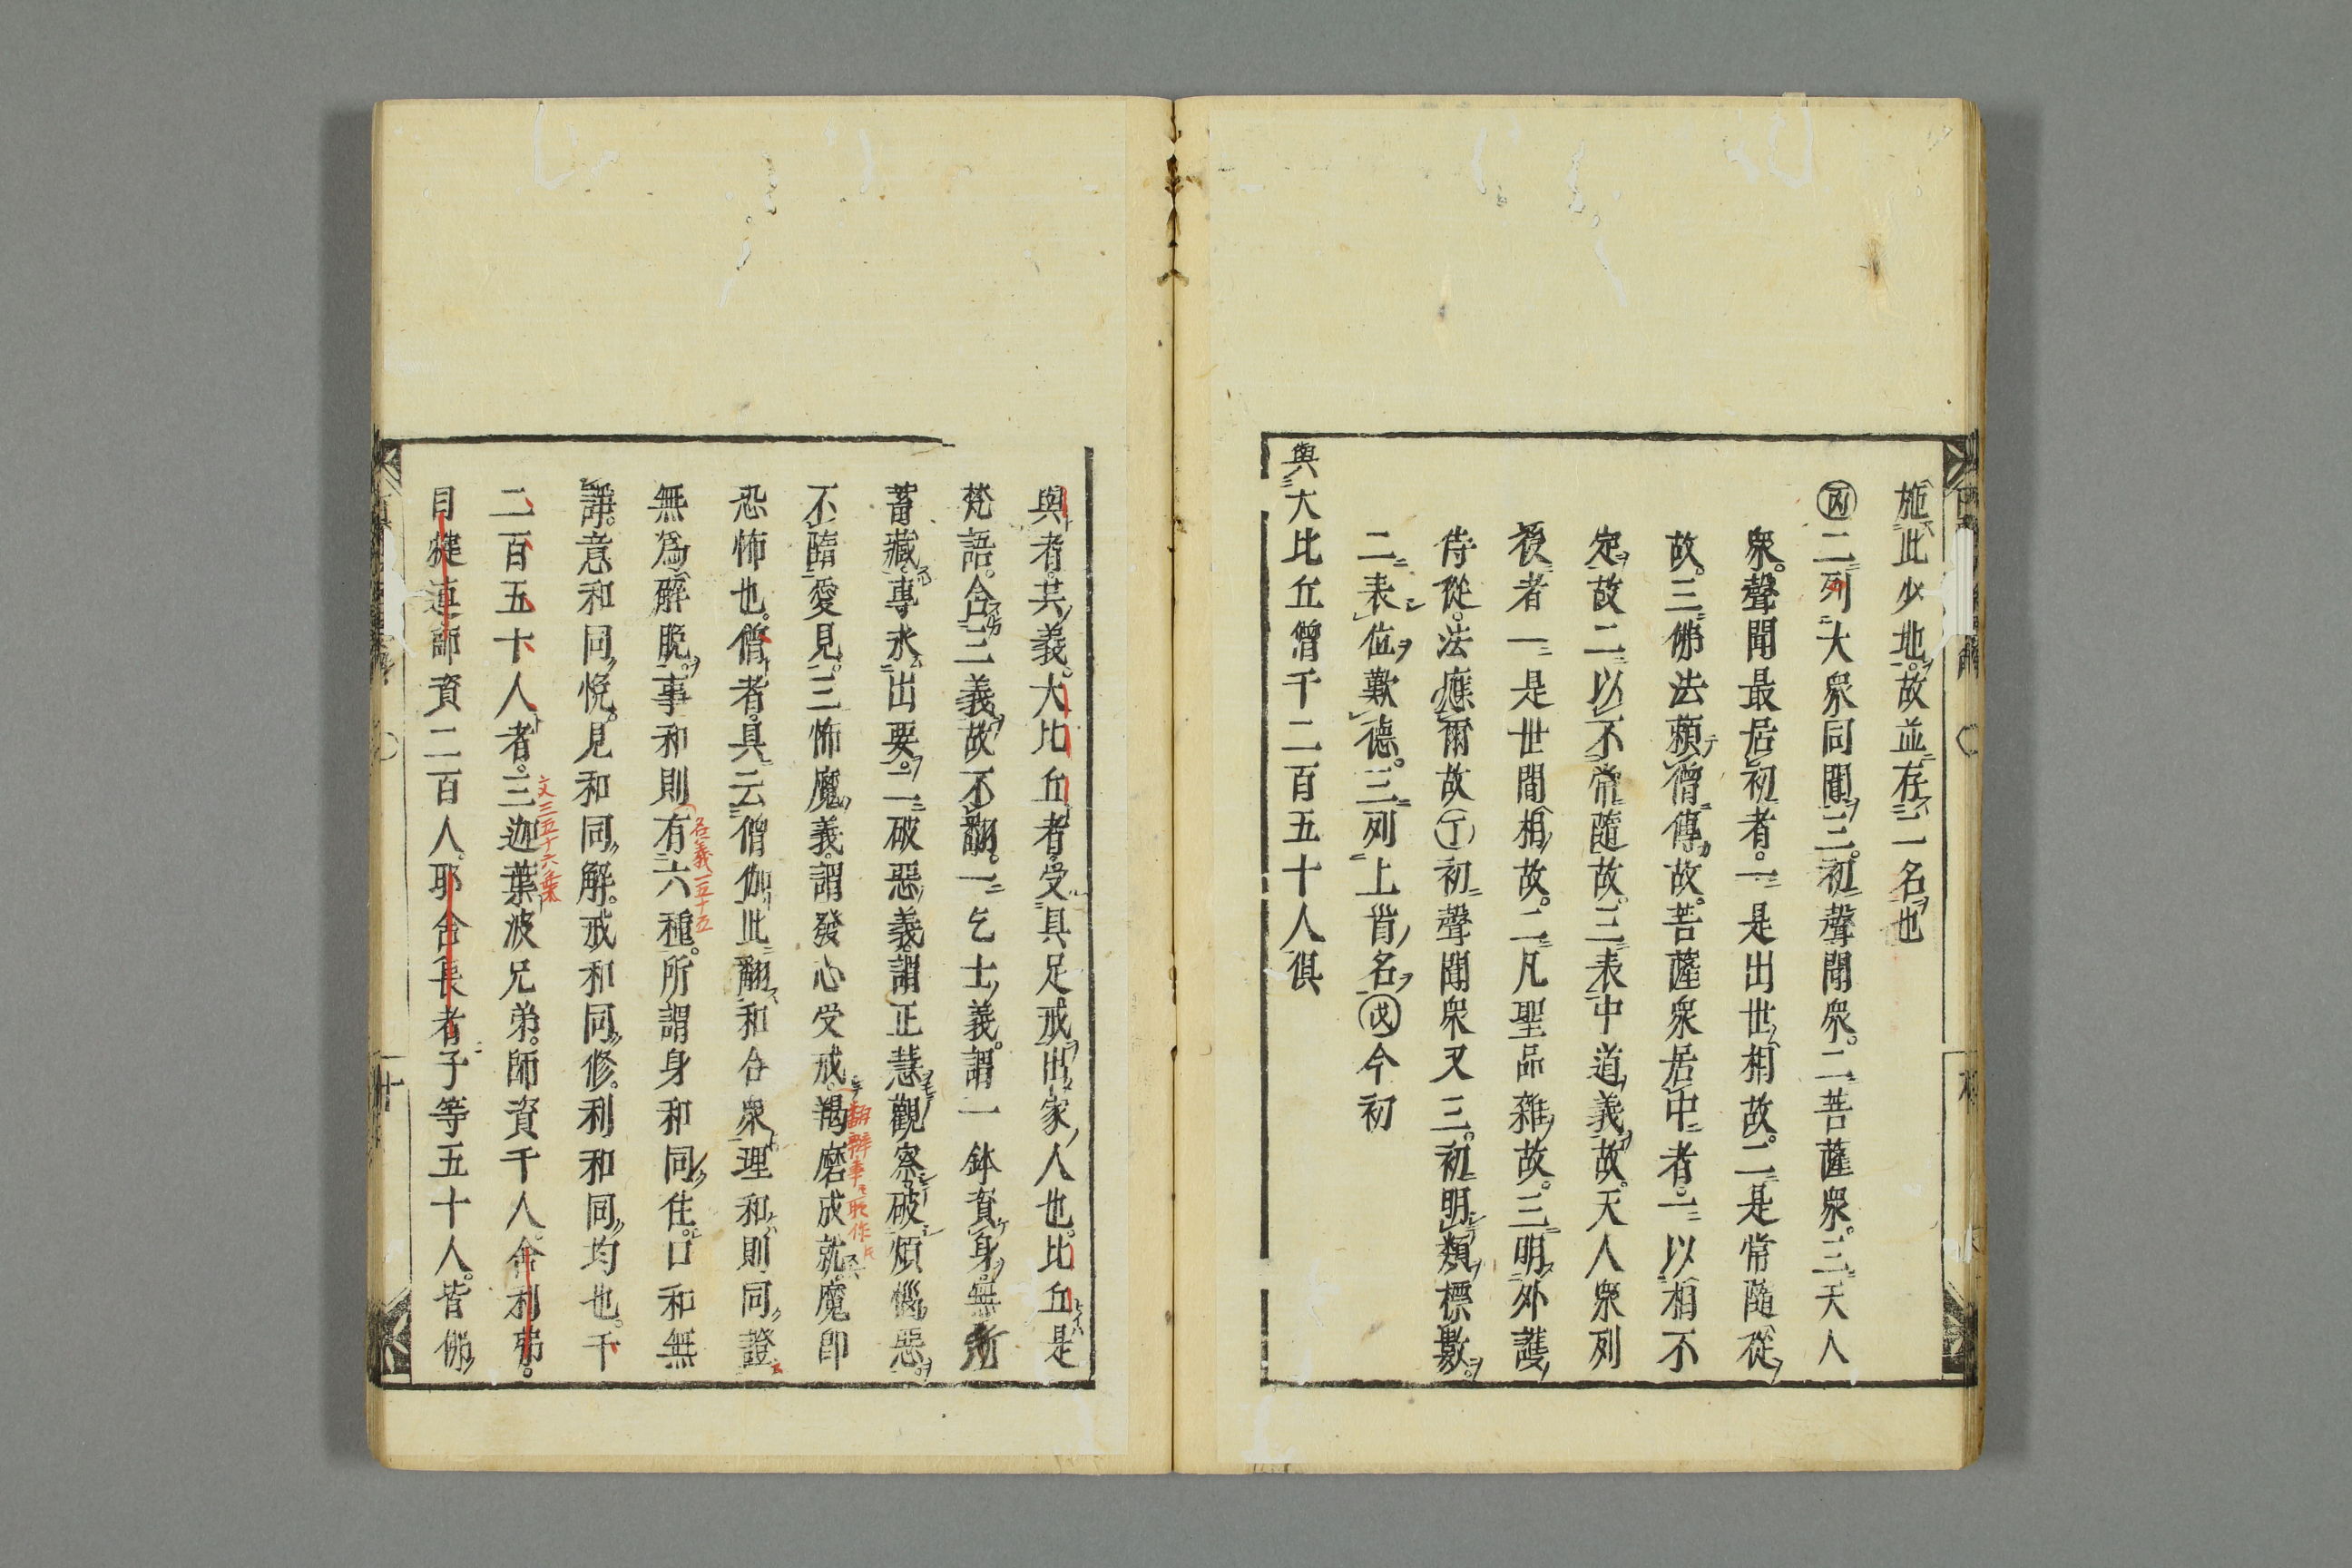 施此少地。故並存二名也
丙二列大衆同聞三。初聲聞衆。二菩薩衆。三天人
衆。聲聞最居初者。一是出世相故。二是常隨從
故。三佛法賴僧傳故。菩薩衆居中者。一以相不
定故二以不常隨故。三表中道義故。天人衆列
後者一是世間相故。二凡聖品雜故。三明外護
侍從。法應爾故丁初聲聞衆又三。初明類標數。
二表位歎德。三列上首名戊今初
與大比丘僧千二百五十人俱
與者。共義。大比丘者受具足戒出家人也。比丘是
梵語。含三義故不翻。一乞士義。謂一鉢資身。無所
蓄藏。專求出要。二破惡義。謂正慧觀察破煩惱惡。
不墮愛見。三怖魔義。謂發心受戒。羯磨成就。魔即
恐怖也。僧者。具云僧伽此翻和合衆理和則同證
無爲解脫。事和則有六種。所謂身和同住。口和無
諍。意和同悅。見和同解。戒和同修。利和同均也。千
二百五十人者。三迦葉波兄弟。師資千人。舍利弗。
目犍連師資二百人。耶舍長者子等五十人。皆佛
名義一五十五
文三五十六葉